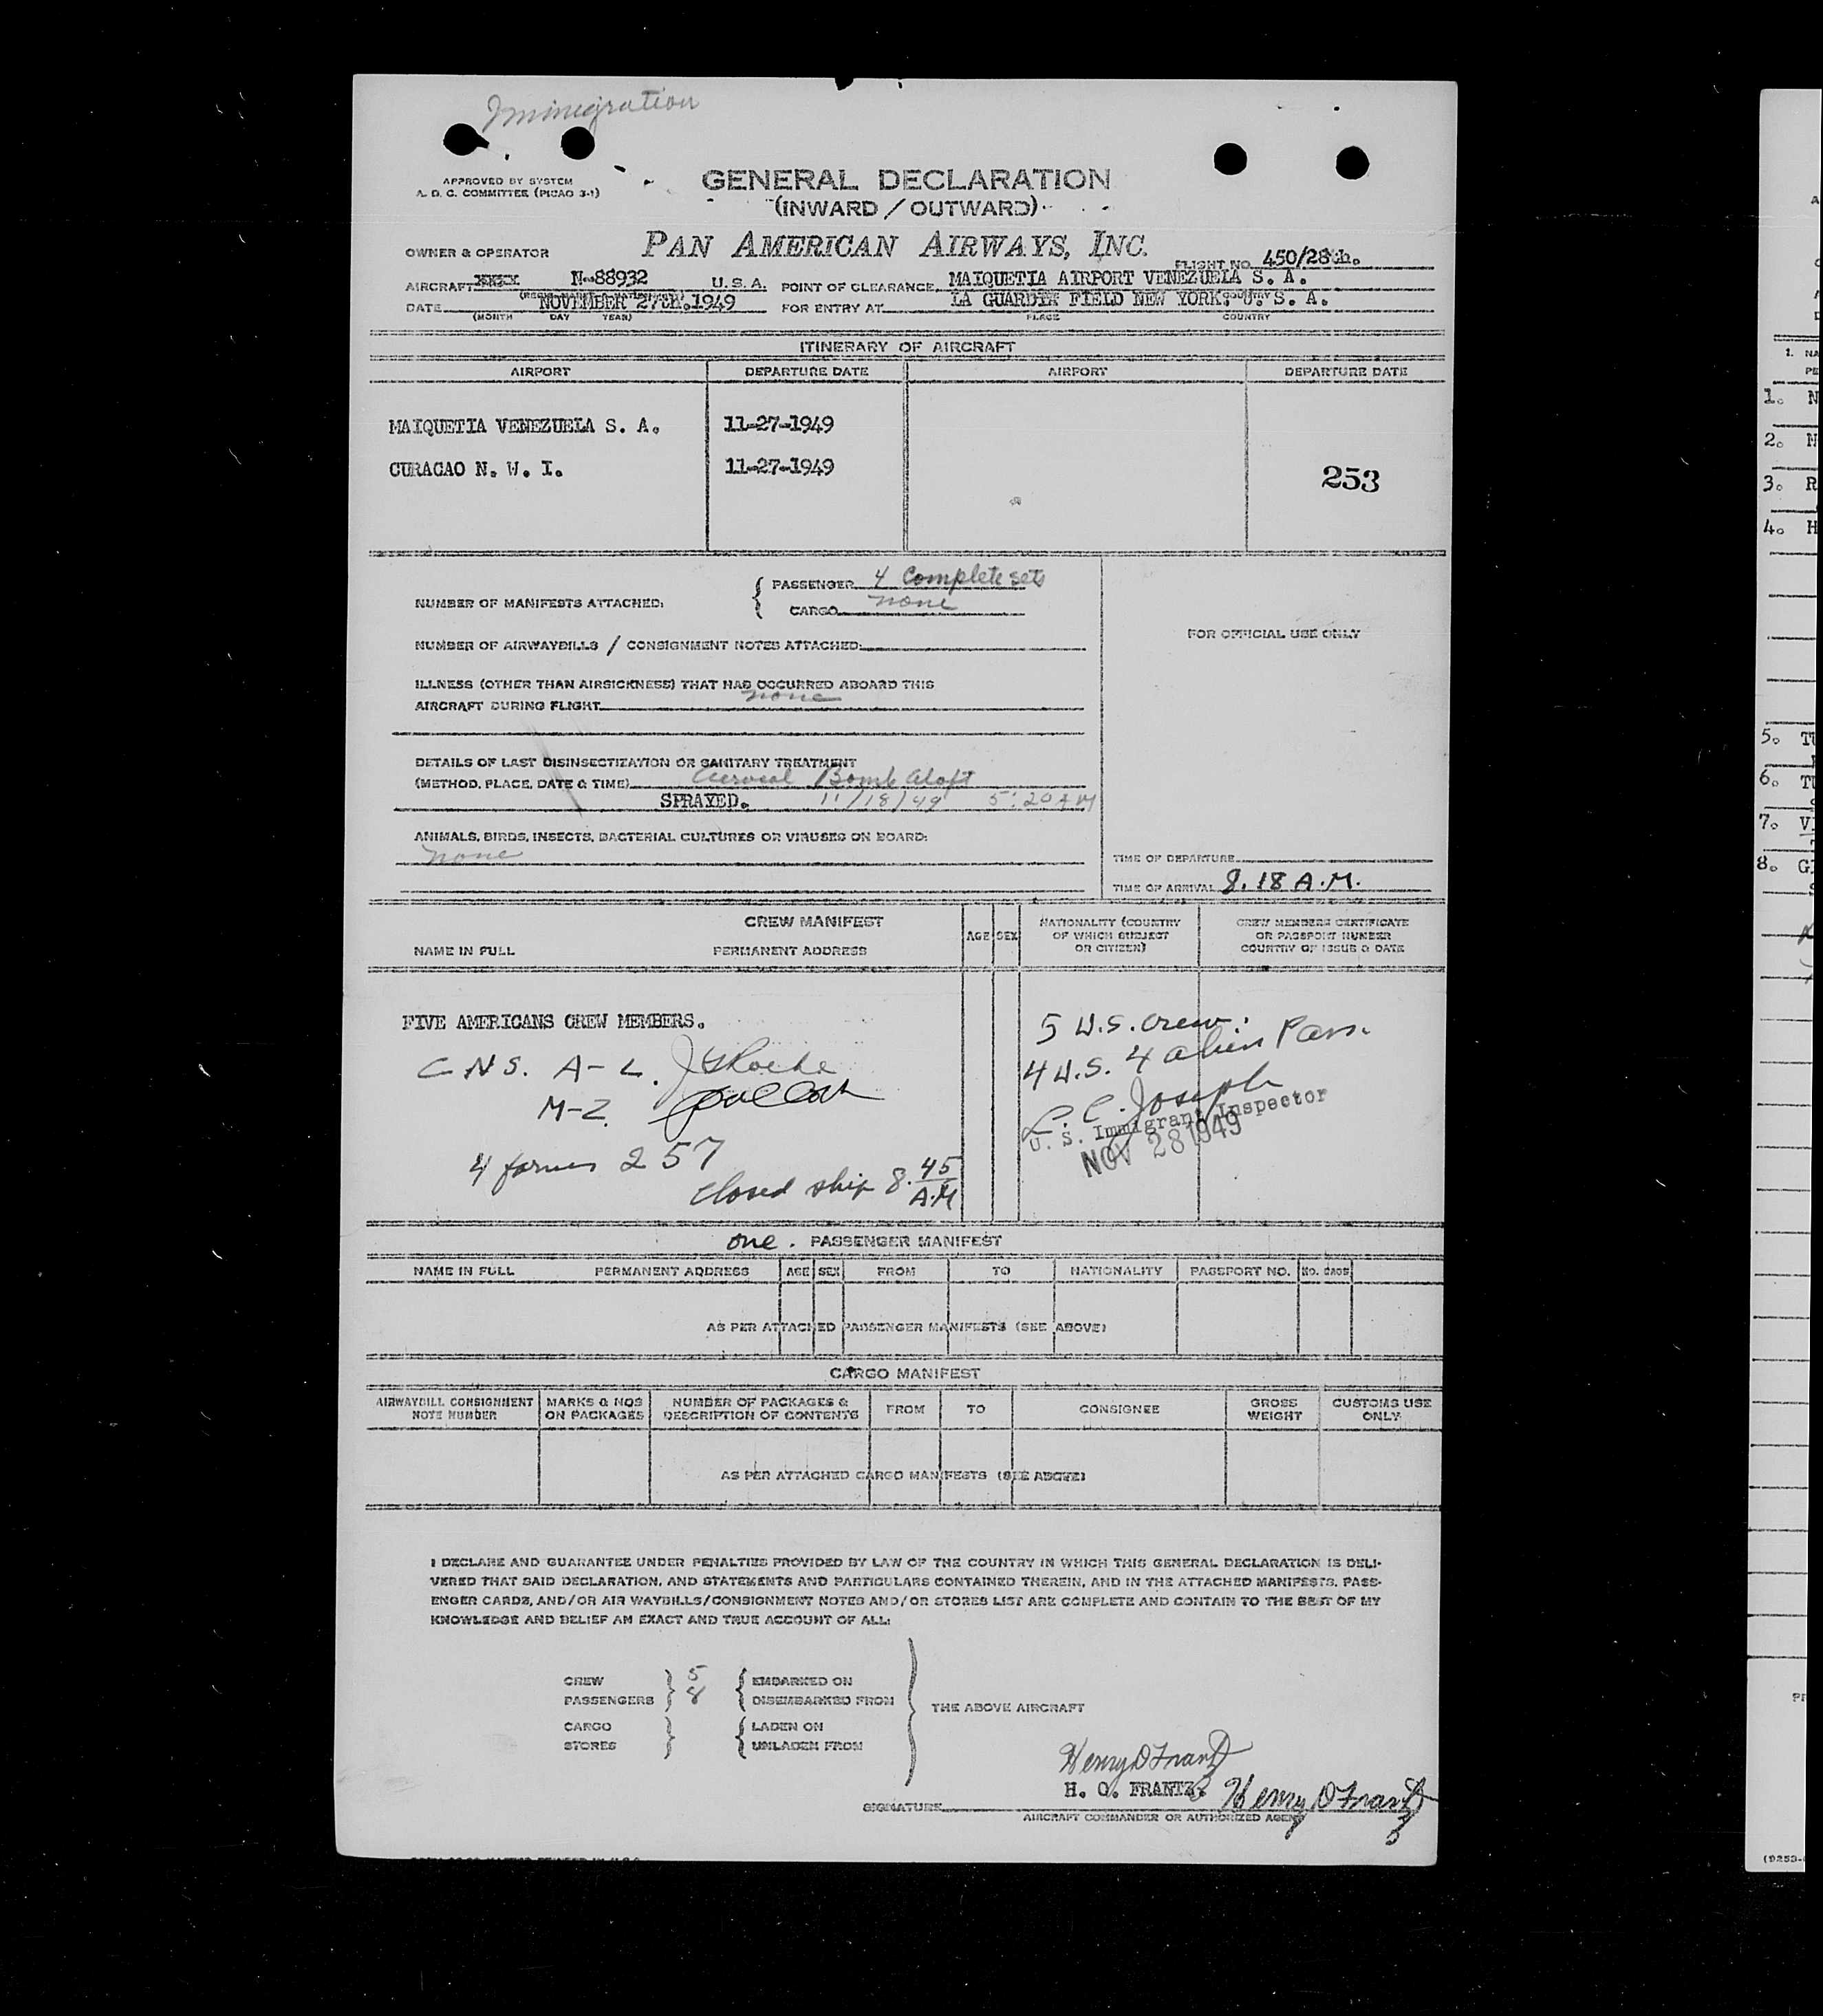 Immigration
APPROVED BY SYSTEM
A. D. C. COMMITTEE (PICAO 3-1)
GENERAL DECLARATION
(INWARD / OUTWARD)
OWNER & OPERATOR PAN AMERICAN AIRWAYS, INC. FLIGHT NO. 450/28th.
AIRCRAFT XXXX N-88932 U. S. A. POINT OF CLEARANCE, MAIQUETIA AIRPORT VENEZUELA S. A.
DATE NOVEMBER 27th.1949 FOR ENTRY AT LA GUARDIA FIELD NEW YORK. U. S. A.
(MONTH DAY YEAR) PLACE COUNTRY
ITINERARY OF AIRCRAFT
AIRPORT DEPARTURE DATE AIRPORT DEPARTURE DATE
MAIQUETIA VENEZUELA S. A. 11-27-1949
CURACAO N. W. I. 11-27-1949
253
NUMBER OF MANIFESTS ATTACHED: PASSENGER 4 Complete sets
CARGO none
NUMBER OF AIRWAYBILLS / CONSIGNMENT NOTES ATTACHED:
FOR OFFICIAL USE ONLY
ILLNESS (OTHER THAN AIRSICKNESS) THAT HAD OCCURRED ABOARD THIS
AIRCRAFT DURING FLIGHT none
DETAILS OF LAST DISINSECTIZATION OR SANITARY TREATMENT
(METHOD, PLACE, DATE & TIME) Aerosol Bomb aloft
SPRAYED. 11/18/49 5:20 AM
ANIMALS, BIRDS, INSECTS, BACTERIAL CULTURES OR VIRUSES ON BOARD:
none
TIME OF DEPARTURE
TIME OF ARRIVAL 8.18 A.M.
CREW MANIFEST
NAME IN FULL PERMANENT ADDRESS AGE SEX NATIONALITY (COUNTRY OF WHICH SUBJECT OR CITIZEN) CREW MEMBERS CERTIFICATE OR PASSPORT NUMBER COUNTRY OF ISSUE & DATE
FIVE AMERICANS CREW MEMBERS.
5 U.S. crew.
C N S. A-L.
4 U.S. 4 alien Pass.
M-Z.
L. C. Joseph
U. S. Immigrant Inspector
NOV 28 1949
4 forms 257
closed ship 8.45 A.M
one. PASSENGER MANIFEST
NAME IN FULL PERMANENT ADDRESS AGE SEX FROM TO NATIONALITY PASSPORT NO.
AS PER ATTACHED PASSENGER MANIFESTS (SEE ABOVE)
CARGO MANIFEST
AIRWAYBILL CONSIGNMENT NOTE NUMBER MARKS & NOS ON PACKAGES NUMBER OF PACKAGES & DESCRIPTION OF CONTENTS FROM TO CONSIGNEE GROSS WEIGHT CUSTOMS USE ONLY
AS PER ATTACHED CARGO MANIFESTS (SEE ABOVE)
I DECLARE AND GUARANTEE UNDER PENALTIES PROVIDED BY LAW OF THE COUNTRY IN WHICH THIS GENERAL DECLARATION IS DELI-
VERED THAT SAID DECLARATION, AND STATEMENTS AND PARTICULARS CONTAINED THEREIN, AND IN THE ATTACHED MANIFESTS, PASS-
ENGER CARDS, AND/OR AIR WAYBILLS/CONSIGNMENT NOTES AND/OR STORES LIST ARE COMPLETE AND CONTAIN TO THE BEST OF MY
KNOWLEDGE AND BELIEF AN EXACT AND TRUE ACCOUNT OF ALL:
CREW 5 EMBARKED ON
PASSENGERS 8 DISEMBARKED FROM
THE ABOVE AIRCRAFT
CARGO LADEN ON
STORES UNLADEN FROM
Henry O Frantz
H. O. FRANTZ. Henry O Frantz
SIGNATURE
AIRCRAFT COMMANDER OR AUTHORIZED AGENT
1. N
2. N
3. R
4. H
5. TU
6. TU
7. VI
8. GI